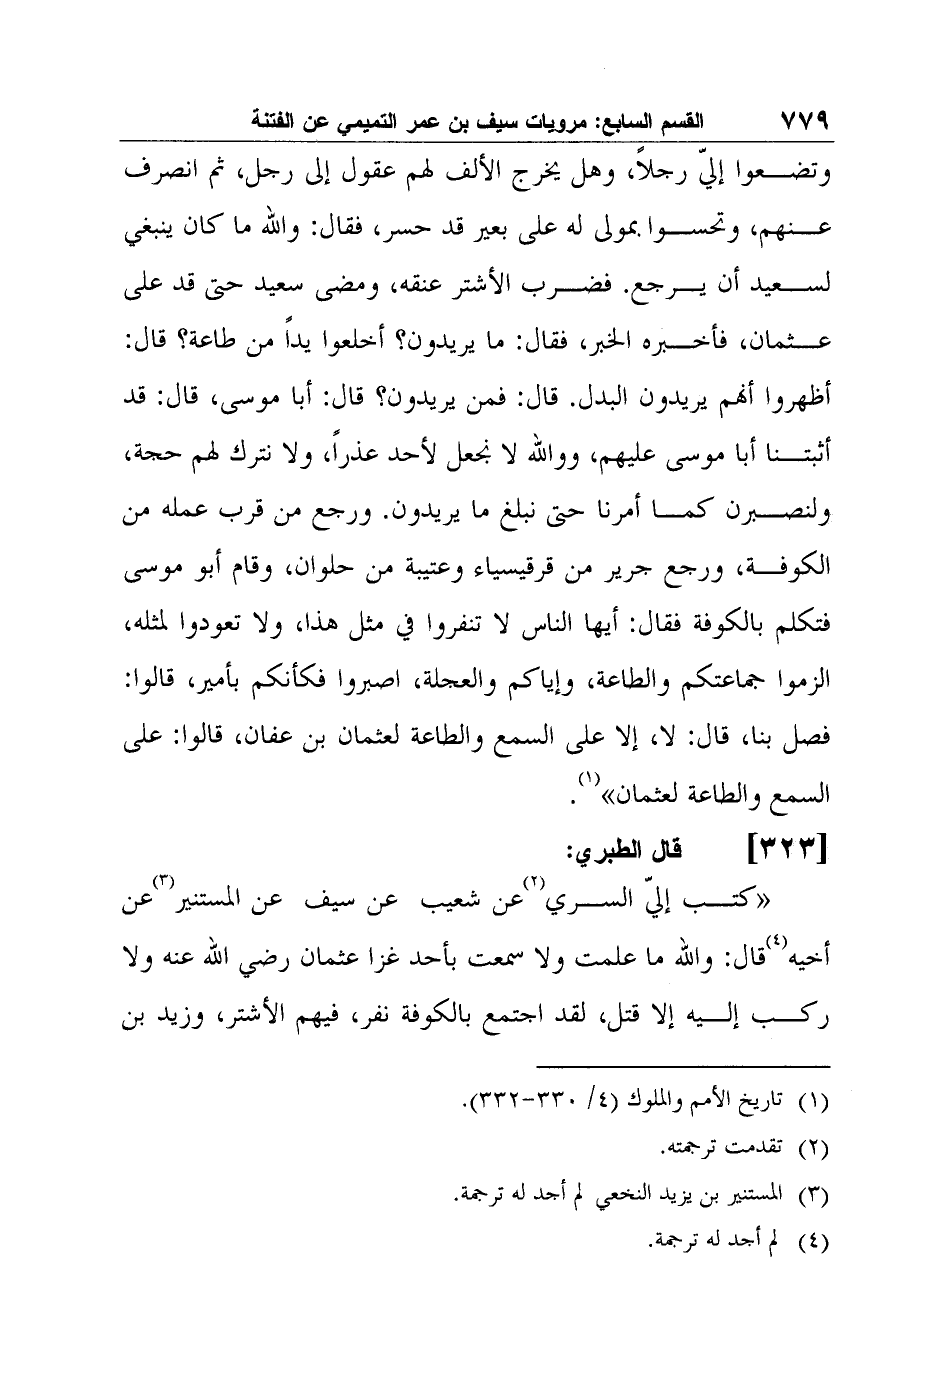 ٧٧٩ القسم السابع: مرويات سيف بن عمر التميمي عن الفتنة
وتضـــعوا إليّ رجلاً، وهل يخرج الألف لهم عقول إلى رجل، ثم انصرف
عـــنهم، وتحســـوا بمولى له على بعير قد حسر، فقال: والله ما كان ينبغي
لســـعيد أن يـــرجع. فضـــرب الأشتر عنقه، ومضى سعيد حتى قد على
عـــثمان، فأخـــبره الخبر، فقال: ما يريدون؟ أخلعوا يداً من طاعة؟ قال:
أظهروا أنهم يريدون البدل. قال: فمن يريدون؟ قال: أبا موسى، قال: قد
أثبتـــنا أبا موسى عليهم، ووالله لا نجعل لأحد عذراً، ولا نترك لهم حجة،
ولنصـــبرن كمـــا أمرنا حتى نبلغ ما يريدون. ورجع من قرب عمله من
الكوفـــة، ورجع جرير من قرقيسياء وعتيبة من حلوان، وقام أبو موسى
فتكلم بالكوفة فقال: أيها الناس لا تنفروا في مثل هذا، ولا تعودوا لمثله،
الزموا جماعتكم والطاعة، وإياكم والعجلة، اصبروا فكأنكم بأمير، قالوا:
فصل بنا، قال: لا، إلا على السمع والطاعة لعثمان بن عفان، قالوا: على
السمع والطاعة لعثمان»(١).
[٣٢٣] قال الطبري:
«كتـــب إليّ الســـري(٢)عن شعيب عن سيف عن المستنير(٣)عن
أخيه(٤)قال: والله ما علمت ولا سمعت بأحد غزا عثمان رضي الله عنه ولا
ركـــب إلـــيه إلا قتل، لقد اجتمع بالكوفة نفر، فيهم الأشتر، وزيد بن
(١) تاريخ الأمم والملوك (٤/ ٣٣٠-٣٣٢).
(٢) تقدمت ترجمته.
(٣) المستنير بن يزيد النخعي لم أجد له ترجمة.
(٤) لم أجد له ترجمة.